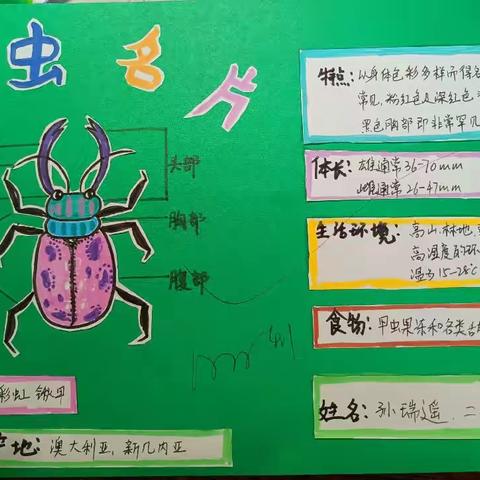 虫名片
头部
胸部
腹部
彩虹锹甲
产地：澳大利亚，新几内亚
特点：以身体色彩多样而得名
常见，粉红色及深红色
黑色胸部即非常罕见
体长：雄通常36-70mm
雌通常26-47mm
生活环境：高山、林地，
高湿度的环
温为15-28℃
食物：甲虫果冻和各类
姓名：孙瑞遥，二